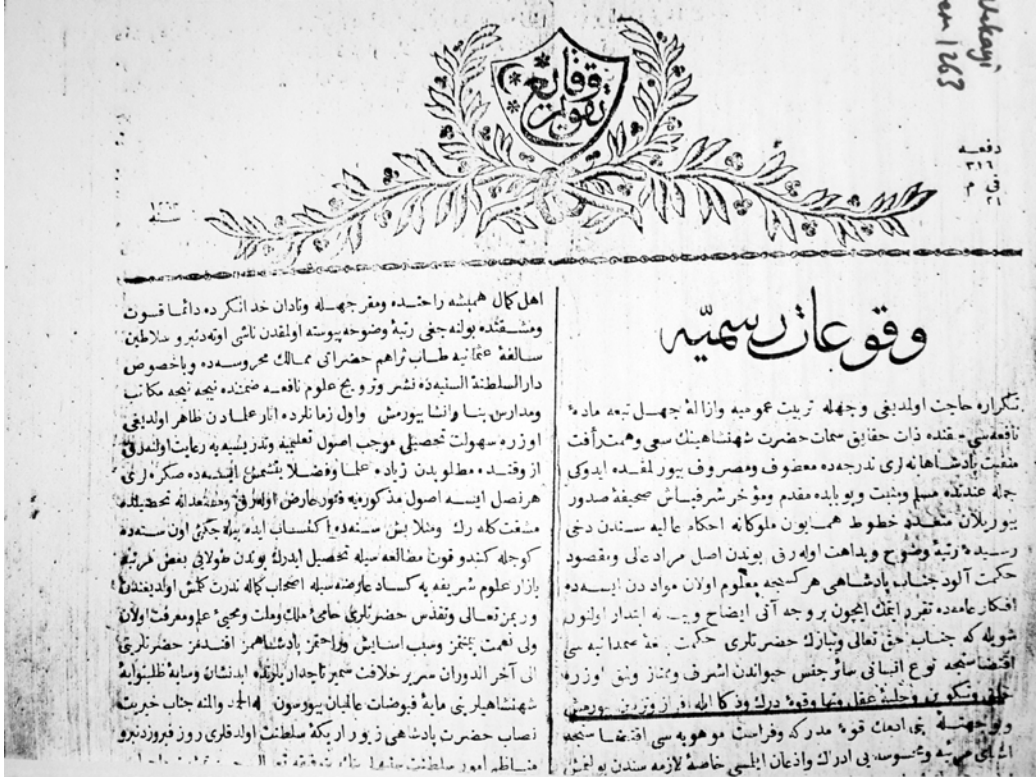 vekayi
en 1263
تقويم وقايع
دفعه
٣١٦
فى م
٢١
سنه ١٢٦٣
وقوعات رسميّه
تكراره حاجت اولديغى وجهله تربيت عموميه وازالۀ جهل تبعه مادۀ
نافعه سى حقنده ذات حقايق سمات حضرت شهنشاهينك سعى وهمت رأفت
منقبت پادشاهانه لرى نه درجه ده معطوف ومصروف بيورلمقده ايدوكى
جمله عندنده مسلم ومثبت وبو بابده مقدم ومؤخر شرفپاش صحيفۀ صدور
بيوريلان متعدد خطوط همايون ملوكانه احكام عاليه سندن دخى
رسيدۀ رتبۀ وضوح وبداهت اوله رق بوندن اصل مراد عالى ومقصود
حكمت آلود جناب پادشاهى هر كسجه معلوم اولان موادن ايسه ده
افكار عامه ده تقرر ايتمك ايچون بر وجه آتى ايضاح وبيانه ابتدار اولنور
شويله كه جناب حق تعالى وتبارك حضرتلرى حكمت صمدانيه سى
اقتضاسنجه نوع انسانى سائر جنس حيواندن اشرف وممتاز اوزره
خلق وتكوين وحليۀ عقل ونها وقوۀ درك وذكا ايله افراز وتزيين بيورمش
وبو جهتله بنى آدمك قوۀ مدركه وفراست موهوبه سى اقتضاسنجه
ومحسوسه يى ادراك واذعان ايلمسى خاصۀ لازمه سندن بولنمش
اهل كمال هميشه راحتده ومقر جهله ونادان خدانكرده دائما قسوت
ومشقتده بولنه جغى رتبۀ وضوحه پيوسته اولمقدن ناشى اوته دنبرو سلاطين
سالفۀ عثمانيه طاب ثراهم حضراتى ممالك محروسه ده وباخصوص
دار السلطنة السنيه ده نشر وترويج علوم نافعه ضمننده نيجه نيجه مكاتب
ومدارس بنا وانشا بيورمش واول زمانلرده آثار علمادن ظاهر اولديغى
اوزره سهولت تحصيلى موجب اصول تعليميه وتدريسيه يه رعايت اولنه رق
از وقتده مطلوبدن زياده علما وفضلا يتشمش ايسه ده صكره لرى
هر نصل ايسه اصول مذكوره يه فتور عارض اوله رق ومقتصدانه تحصيلده
مشقت كله رك ومثلا بش سنه ده اكتساب ايده بيله جكنى اون سنه ده
كوجله كندو قوت مطالعه سيله تحصيل ايدرك بوندن طولايى بعض مرتبه
بازار علوم شريفه يه كساد عارضه سيله اصحاب كماله ندرت كلمش اولديغندن
وربمز تعالى وتقدس حضرتلرى حامئ ملك وملت ومحبئ علم ومعرفت اولان
ولى نعمت بيمنتمز وسبب آسايش وراحتمز پادشاهمز افندمز حضرتلرينى
الى آخر الدوران سرير خلافت مصير تاجدارانه لرنده
شهنشاهيلرينى مايۀ فيوضات عالميان بيورسون لله الحمد والمنه جناب خيريت
نصاب حضرت پادشاهى زيور اريكۀ سلطنت اولدقلرى روز فيروزدنبرو